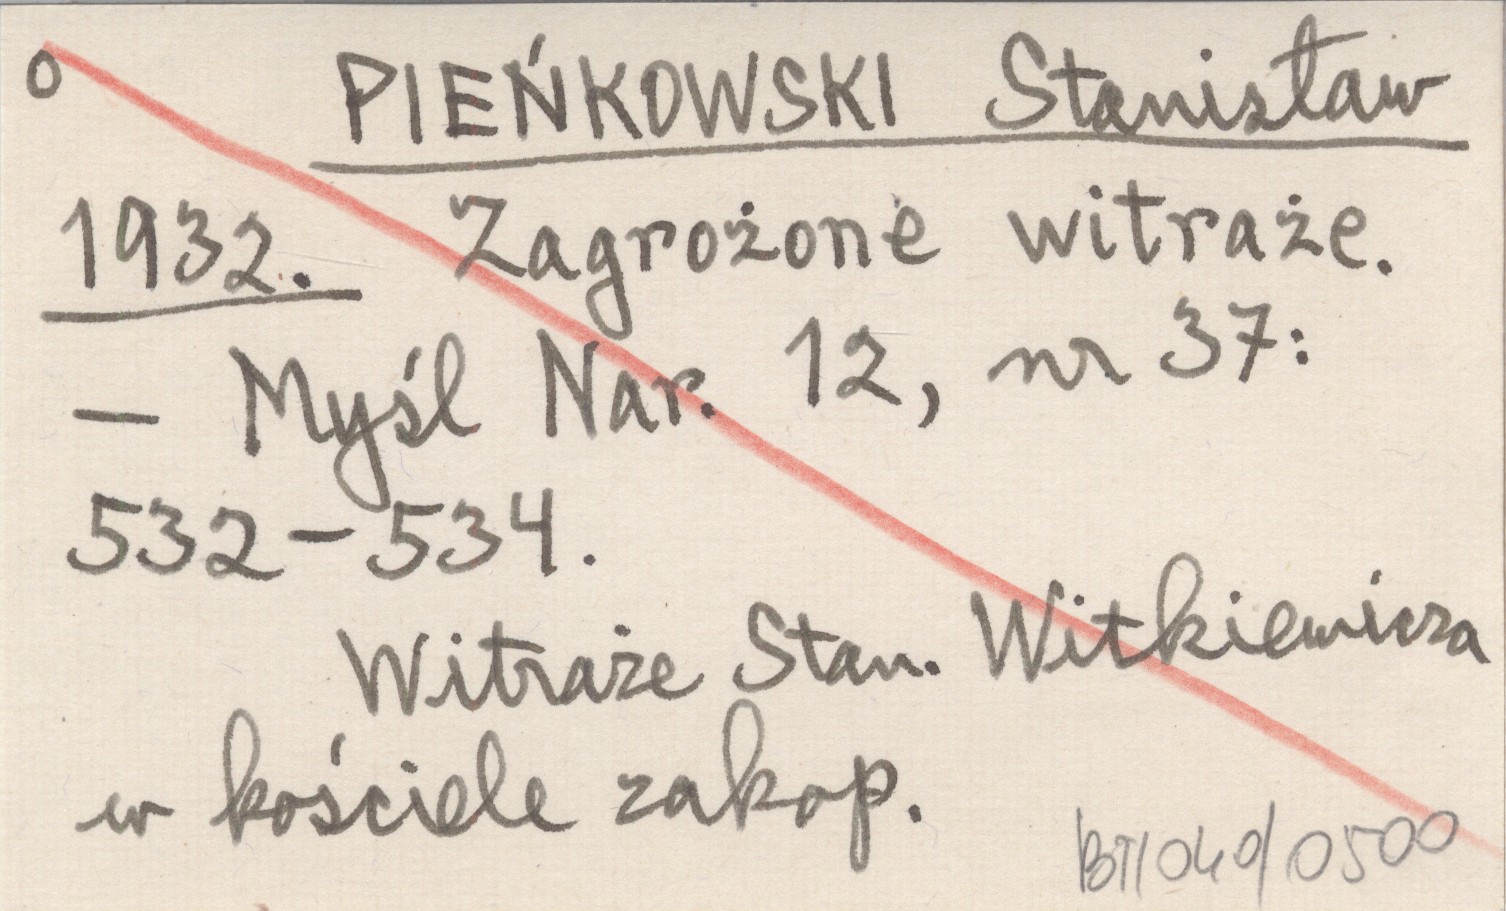 o PIEŃKOWSKI Stanisław
1932. Zagrożone witraże.
— Myśl Nar. 12, nr 37:
532–534.
Witraże Stan. Witkiewicza
w kościele zakop.
BT/040/0500